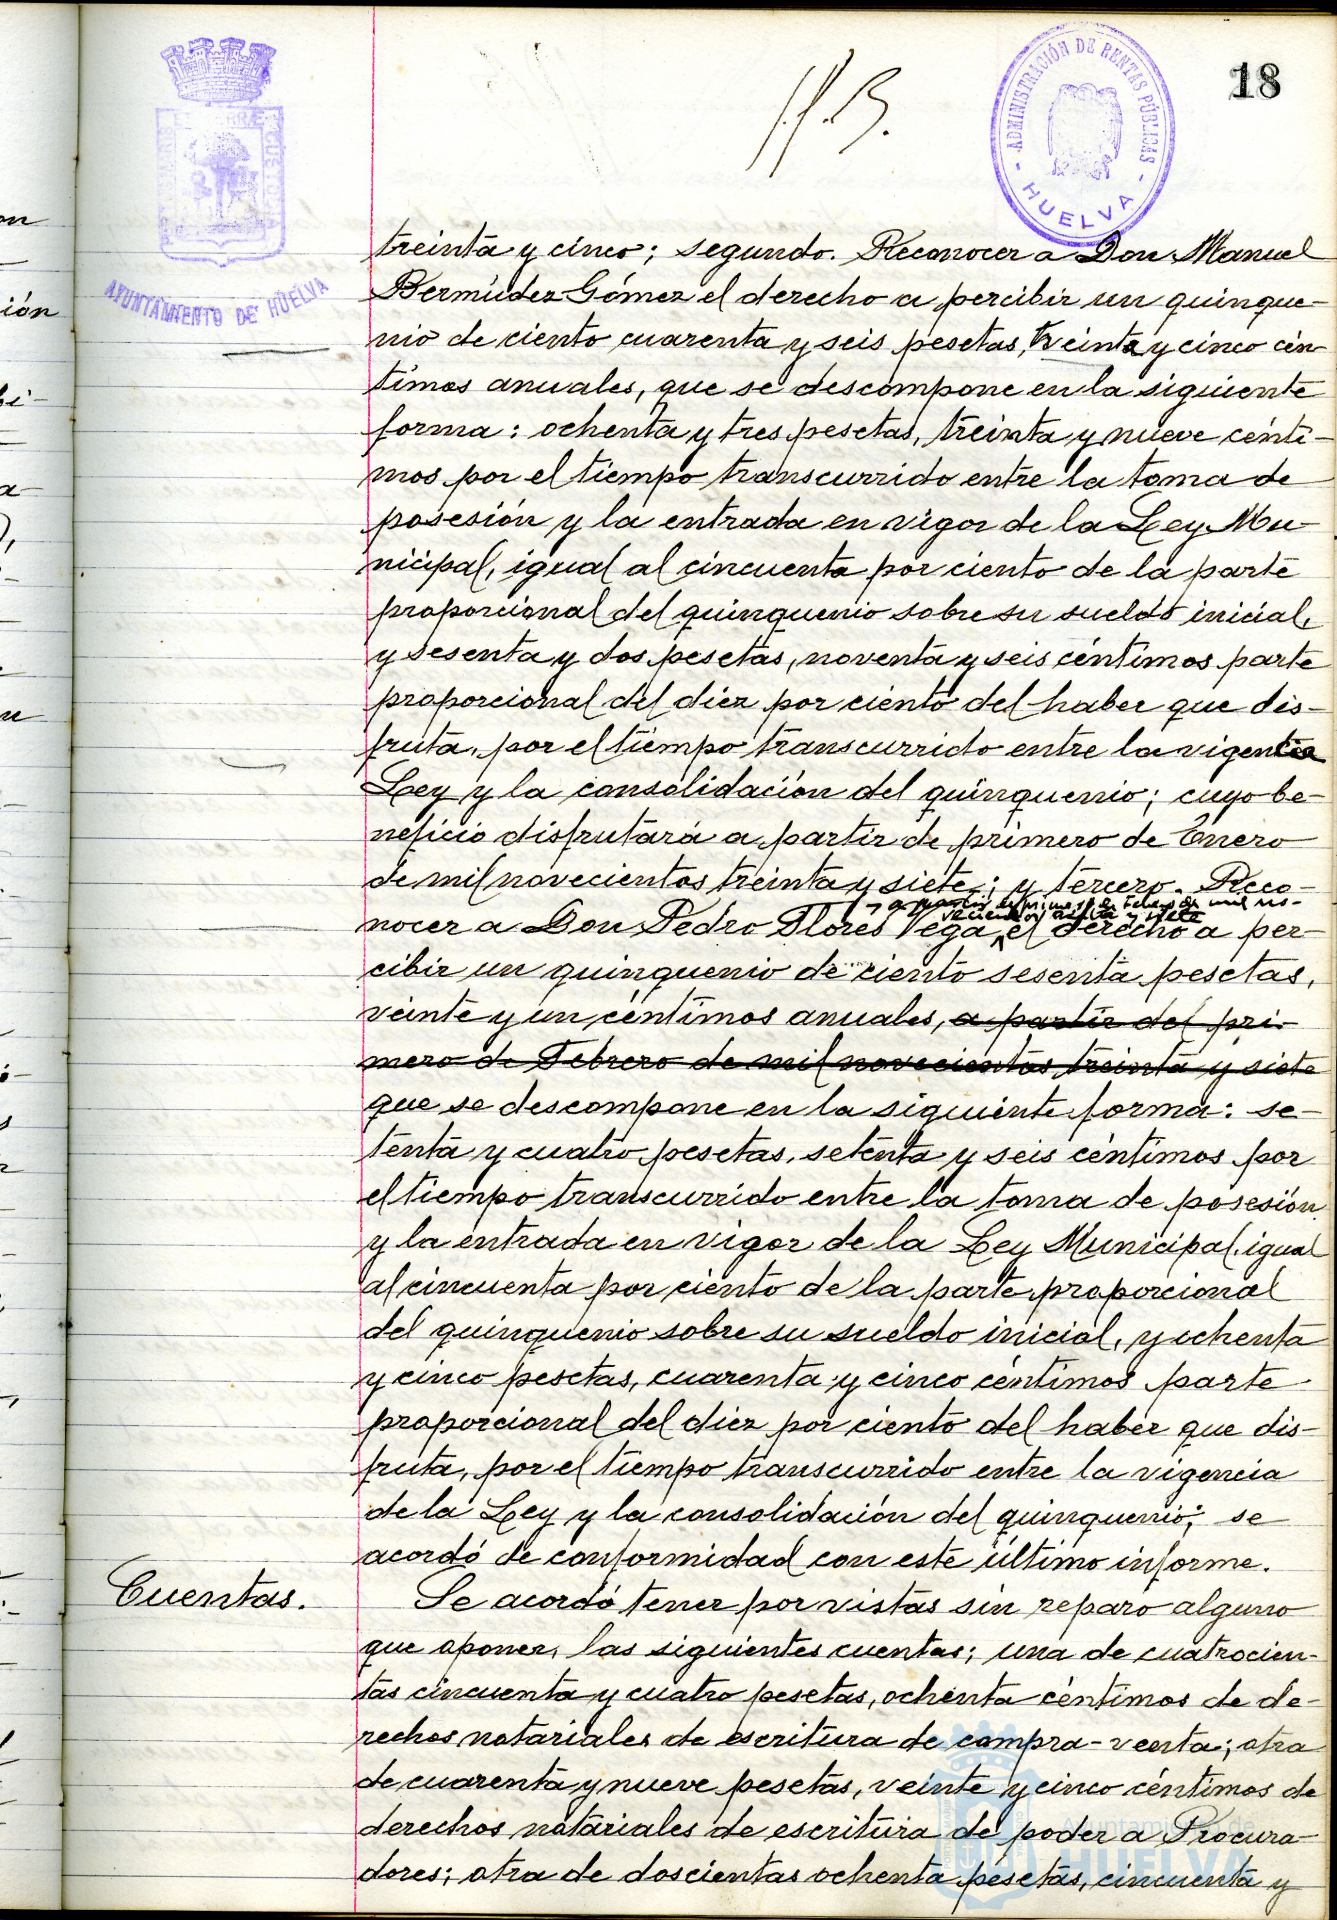 18
ADMINISTRACIÓN DE RENTAS PÚBLICAS
- HUELVA -
AYUNTAMIENTO DE HUELVA
treinta y cinco; segundo. Reconocer a Don Manuel
Bermúdez Gómez el derecho a percibir un quinque-
nio de ciento cuarenta y seis pesetas, treinta y cinco cén
timos anuales, que se descompone en la siguiente
forma: ochenta y tres pesetas, treinta y nueve cénti-
mos por el tiempo transcurrido entre la toma de
posesión y la entrada en vigor de la Ley Mu-
nicipal, igual al cincuenta por ciento de la parte
proporcional del quinquenio sobre su sueldo inicial,
y sesenta y dos pesetas, noventa y seis céntimos parte
proporcional del diez por ciento del haber que dis-
fruta, por el tiempo transcurrido entre la vigencia
Ley y la consolidación del quinquenio; cuyo be-
neficio disfrutará a partir de primero de Enero
de mil novecientos treinta y siete; y tercero. Reco-
a partir del primero de Febrero de mil no-
vecientos treinta y siete
nocer a Don Pedro Flores Vega, el derecho a per-
cibir un quinquenio de ciento sesenta pesetas,
veinte y un céntimos anuales, a partir del pri-
mero de Febrero de mil novecientos treinta y siete
que se descompone en la siguiente forma: se-
tenta y cuatro pesetas, setenta y seis céntimos por
el tiempo transcurrido entre la toma de posesión
y la entrada en vigor de la Ley Municipal, igual
al cincuenta por ciento de la parte proporcional
del quinquenio sobre su sueldo inicial, y ochenta
y cinco pesetas, cuarenta y cinco céntimos parte
proporcional del diez por ciento del haber que dis-
fruta, por el tiempo transcurrido entre la vigencia
de la Ley y la consolidación del quinquenio; se
acordó de conformidad con este último informe.
Cuentas.
Se acordó tener por vistas sin reparo alguno
que oponer, las siguientes cuentas; una de cuatrocien-
tas cincuenta y cuatro pesetas, ochenta céntimos de de-
rechos notariales de escritura de compra-venta; otra
de cuarenta y nueve pesetas, veinte y cinco céntimos de
derechos notariales de escritura de poder a Procura-
dores; otra de doscientas ochenta pesetas, cincuenta y
Ayuntamiento de
HUELVA